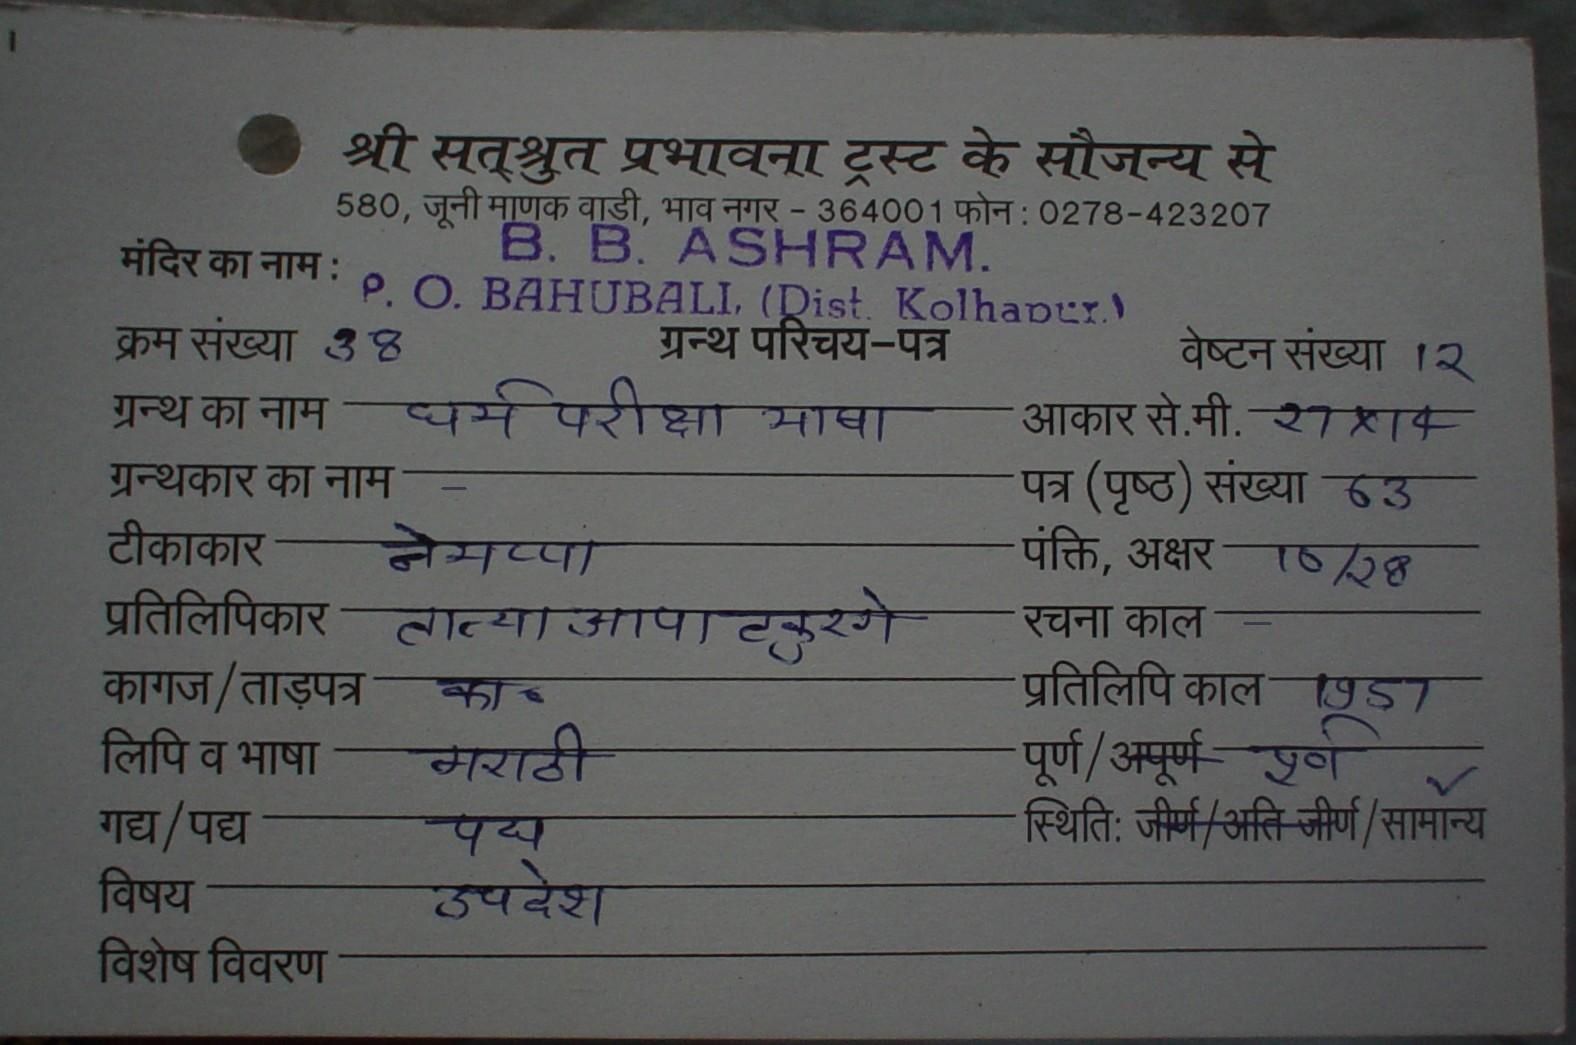 श्री सत्श्रुत प्रभावना ट्रस्ट के सौजन्य से
580, जूनी माणक वाडी, भाव नगर - 364001 फोन : 0278-423207
मंदिर का नाम : B. B. ASHRAM.
P. O. BAHUBALI, (Dist. Kolhapur.)
क्रम संख्या 38 ग्रन्थ परिचय-पत्र वेष्टन संख्या 12
ग्रन्थ का नाम धर्म परीक्षा भाषा आकार से.मी. 27 x 14
ग्रन्थकार का नाम - पत्र (पृष्ठ) संख्या 63
टीकाकार नेमप्पा पंक्ति, अक्षर /28
प्रतिलिपिकार तात्या आपा रचना काल -
कागज/ताड़पत्र का. प्रतिलिपि काल 1957
लिपि व भाषा मराठी पूर्ण/अपूर्ण पूर्ण
गद्य/पद्य पद्य स्थिति: जीर्ण/अति जीर्ण/सामान्य ✓
विषय उपदेश
विशेष विवरण